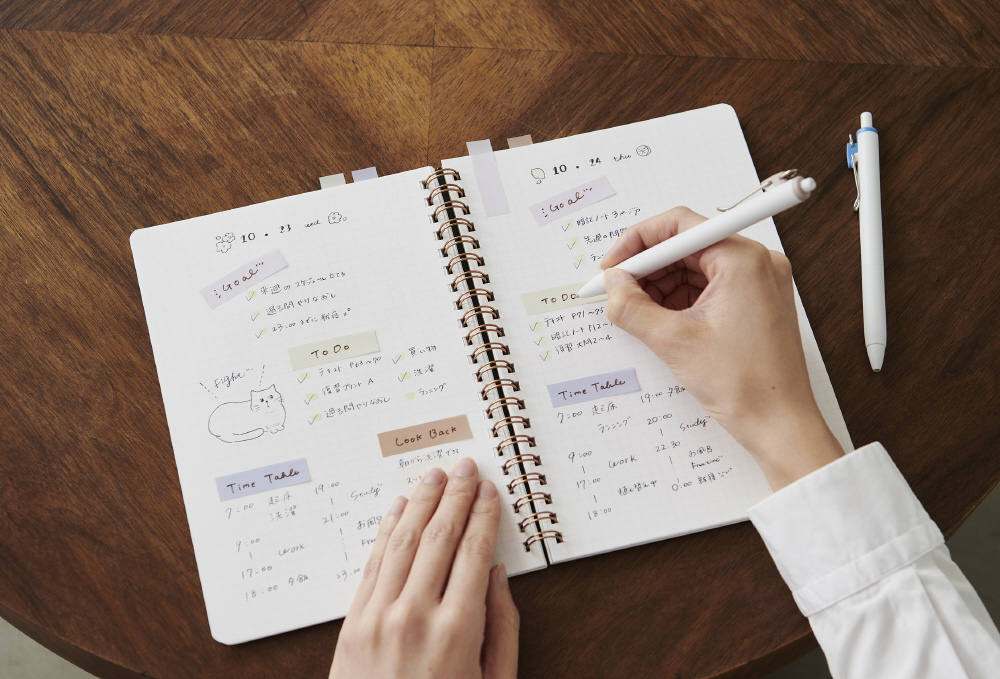 10 • 23 wed
Goal
来週のスケジュールたてる
過去問やりなおし
23:00までに就寝
ToDo
テキスト P63~70
復習プリント A
過去問やりなおし
買い物
洗濯
ランニング
Fight
Look Back
朝から洗濯できた
Time Table
7:00 起床
洗濯
9:00
work
17:00
18:00 夕飯
19:00
Study
21:00
お風呂
Free
23:00
10 • 24 thu
Goal
暗記ノート 3ページ
先週の問題
ラン
ToDo
テキスト P71~75
暗記ノート P12~1
復習 大問2~4
Time Table
7:00 起床
ランニング
9:00
work
17:00
18:00
19:00 夕飯
20:00
Study
22:30
お風呂
Free
0:00 就寝